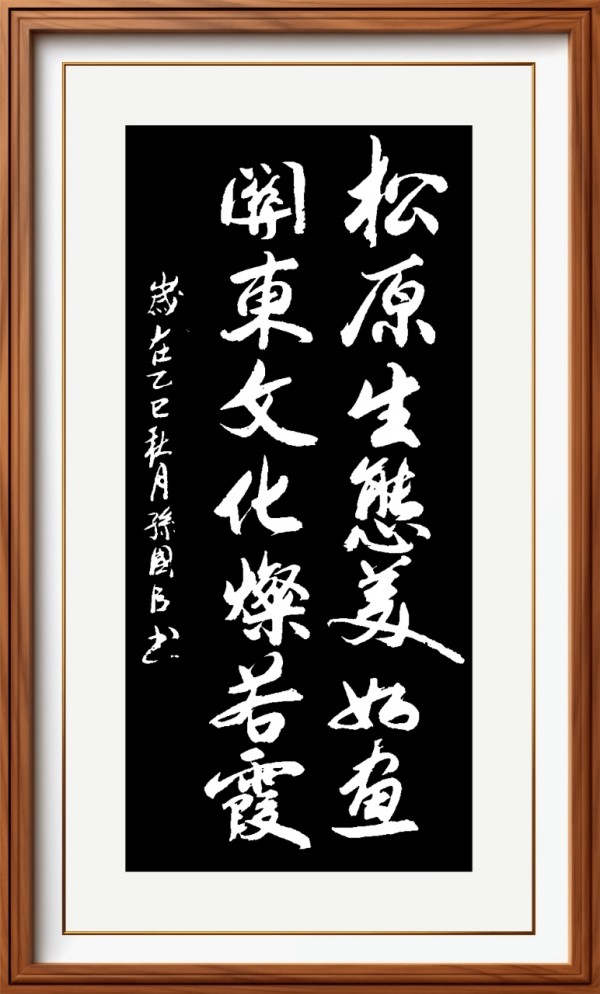 松原生態美如画
關東文化燦若霞
歲在乙巳秋月孫國臣书